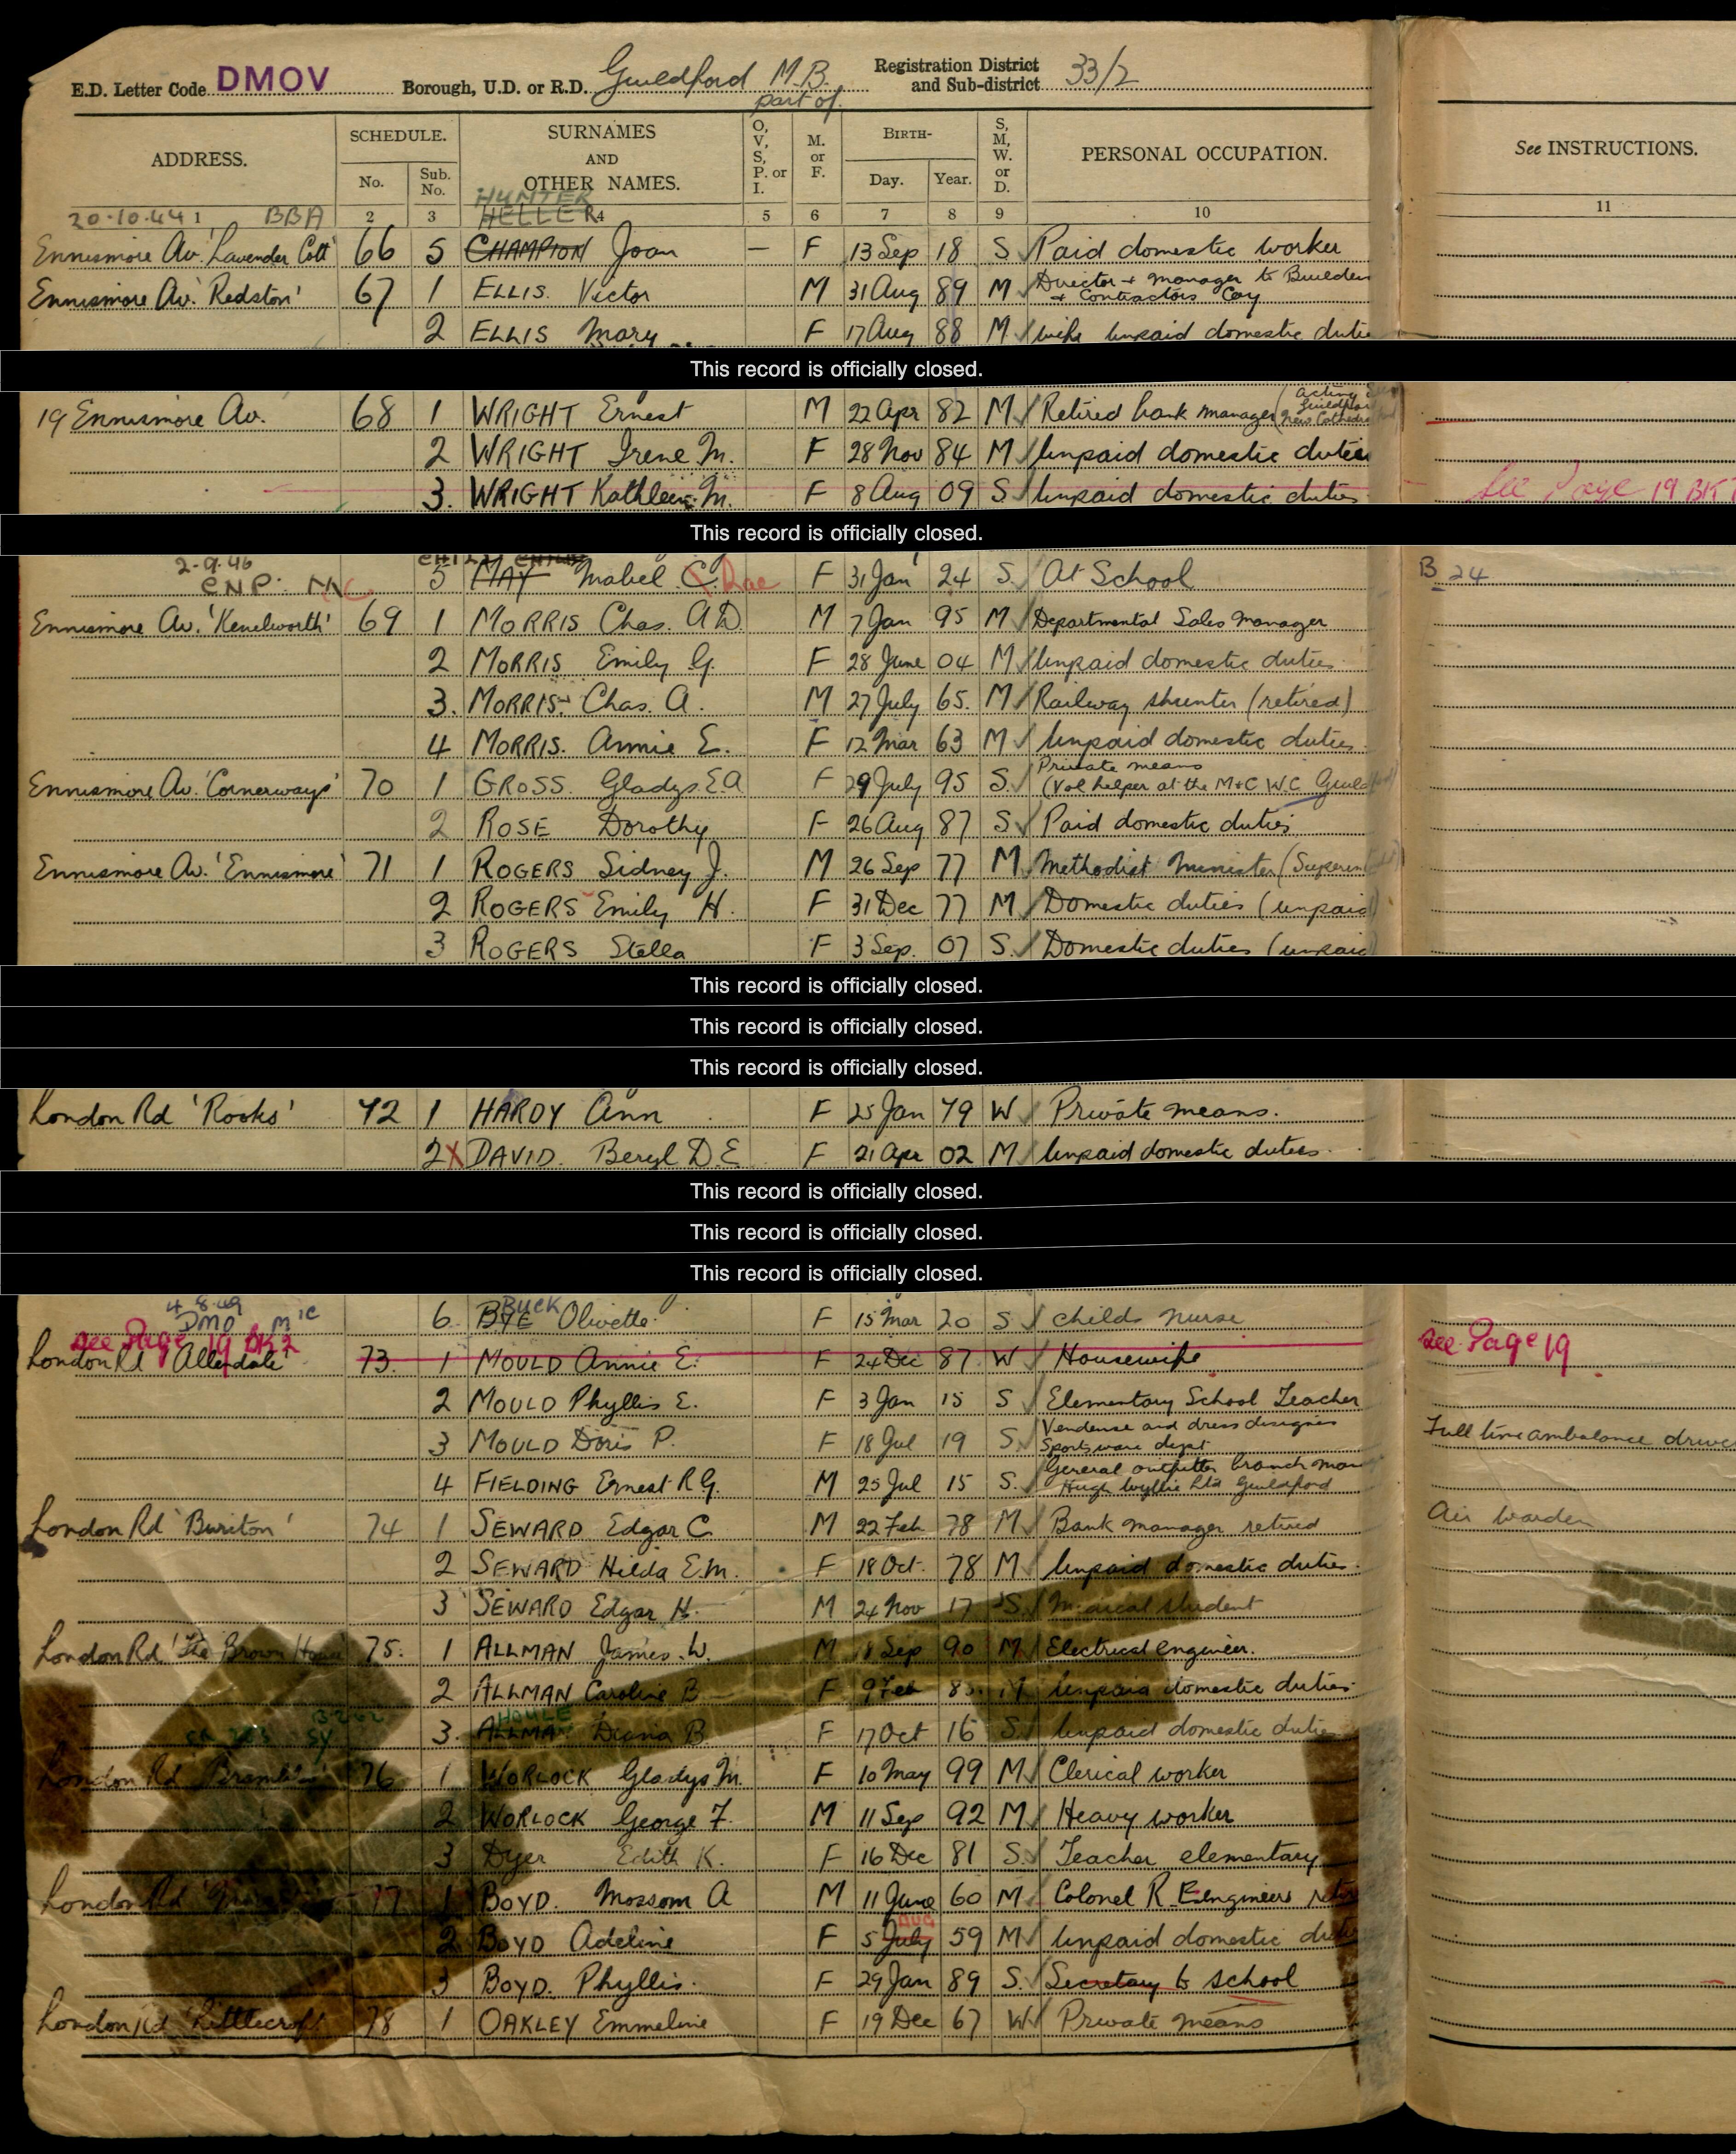 E.D. Letter Code DMOV Borough, U.D. or R.D. Guildford M.B. part of Registration District and Sub-district 33/2
ADDRESS. SCHEDULE. No. Sub. No. SURNAMES AND OTHER NAMES. O, V, S, P. or I. M. or F. BIRTH- Day. Year. S, M, W. or D. PERSONAL OCCUPATION. See INSTRUCTIONS.
HUNTER
20·10·44 1 BBA 2 3 HELLER 4 5 6 7 8 9 10 11
Ennismore Av. 'Lavender Cott' 66 5 CHAMPION Joan — F 13 Sep 18 S Paid domestic worker
Ennismore Av. 'Redston' 67 1 ELLIS. Victor M 31 Aug 89 M Director & manager to Builders & Contractors Coy
2 ELLIS Mary F 17 Aug 88 M wife unpaid domestic dutie
This record is officially closed.
19 Ennismore Av. 68 1 WRIGHT Ernest M 22 Apr 82 M Retired bank manager (acting
2 WRIGHT Irene M. F 28 Nov 84 M Unpaid domestic duties
3. WRIGHT Kathleen M. F 8 Aug 09 S Unpaid domestic duties See Page 19 BK
This record is officially closed.
2-9-46
CNP.
5 MAY Mabel C. Rae F 31 Jan 24 S. At School B 24
Ennismore Av. 'Kenelworth' 69 1 MORRIS Chas. A D. M 7 Jan 95 M Departmental Sales Manager
2 MORRIS Emily G. F 28 June 04 M Unpaid domestic duties
3. MORRIS. Chas. A. M 27 July 65. M Railway shunter (retired)
4 MORRIS. Annie E. F 12 Mar 63 M Unpaid domestic duties
Ennismore Av. 'Cornerways' 70 1 GROSS. Gladys E A F 29 July 95 S. Private means (Vol helper at the M+C W.C Guild
2 ROSE Dorothy F 26 Aug 87 S Paid domestic duties
Ennismore Av. 'Ennismore' 71 1 ROGERS Sidney J. M 26 Sep 77 M Methodist Minister (Superin
2 ROGERS Emily H. F 31 Dec 77 M Domestic duties (unpaid)
3 ROGERS Stella F 3 Sep. 07 S. Domestic duties (unpaid
This record is officially closed.
This record is officially closed.
This record is officially closed.
London Rd 'Rooks' 72 1 HARDY Ann F 25 Jan 79 W Private means.
2 X DAVID. Beryl D. E F 21 Apr 02 M Unpaid domestic duties.
This record is officially closed.
This record is officially closed.
This record is officially closed.
4 8·49 BUCK
DMO 6. BYE Olivette F 15 Mar 20 S childs nurse
see Page 19 BK2
London Rd 'Allendale' 73. 1 MOULD Annie E. F 24 Dec 87 W Housewife see Page 19
2 MOULD Phyllis E. F 3 Jan 15 S Elementary School Teacher
3 MOULD Doris P. F 18 Jul 19 S. Vendeuse and dress designer Sportsware dept Full time ambulance drive
4 FIELDING Ernest R G. M 25 Jul 15 S. General outfitter branch man Hugh Wyllie Ltd Guildford
London Rd 'Buriton' 74 1 SEWARD Edgar C. M 22 Feb 78 M Bank manager retired Air warden
2 SEWARD Hilda E.M. F 18 Oct. 78 M Unpaid domestic duties.
3 SEWARD Edgar H. M 24 Nov 17 S. Medical student
London Rd 'The Brown House' 75. 1 ALLMAN James. W. M 8 Sep 90 M. Electrical engineer.
2 ALLMAN Caroline B F 9 Feb 83. M Unpaid domestic duties.
HOULE
3. ALLMAN Diana B F 17 Oct 16 S. Unpaid domestic duties
London Rd 76 1 WORLOCK Gladys M. F 10 May 99 M Clerical worker
2 WORLOCK George F. M 11 Sep 92 M Heavy worker
3 Dyer Edith K. F 16 Dec 81 S. Teacher elementary
London Rd 77 1 BOYD. Mossom A M 11 June 60 M Colonel R. Engineers retir
AUG
2 BOYD Adeline F 5 July 59 M Unpaid domestic duties
3 BOYD. Phyllis. F 29 Jan 89 S. Secretary to school
London Rd 'Littlecroft' 78 1 OAKLEY Emmeline F 19 Dec 67 W Private means